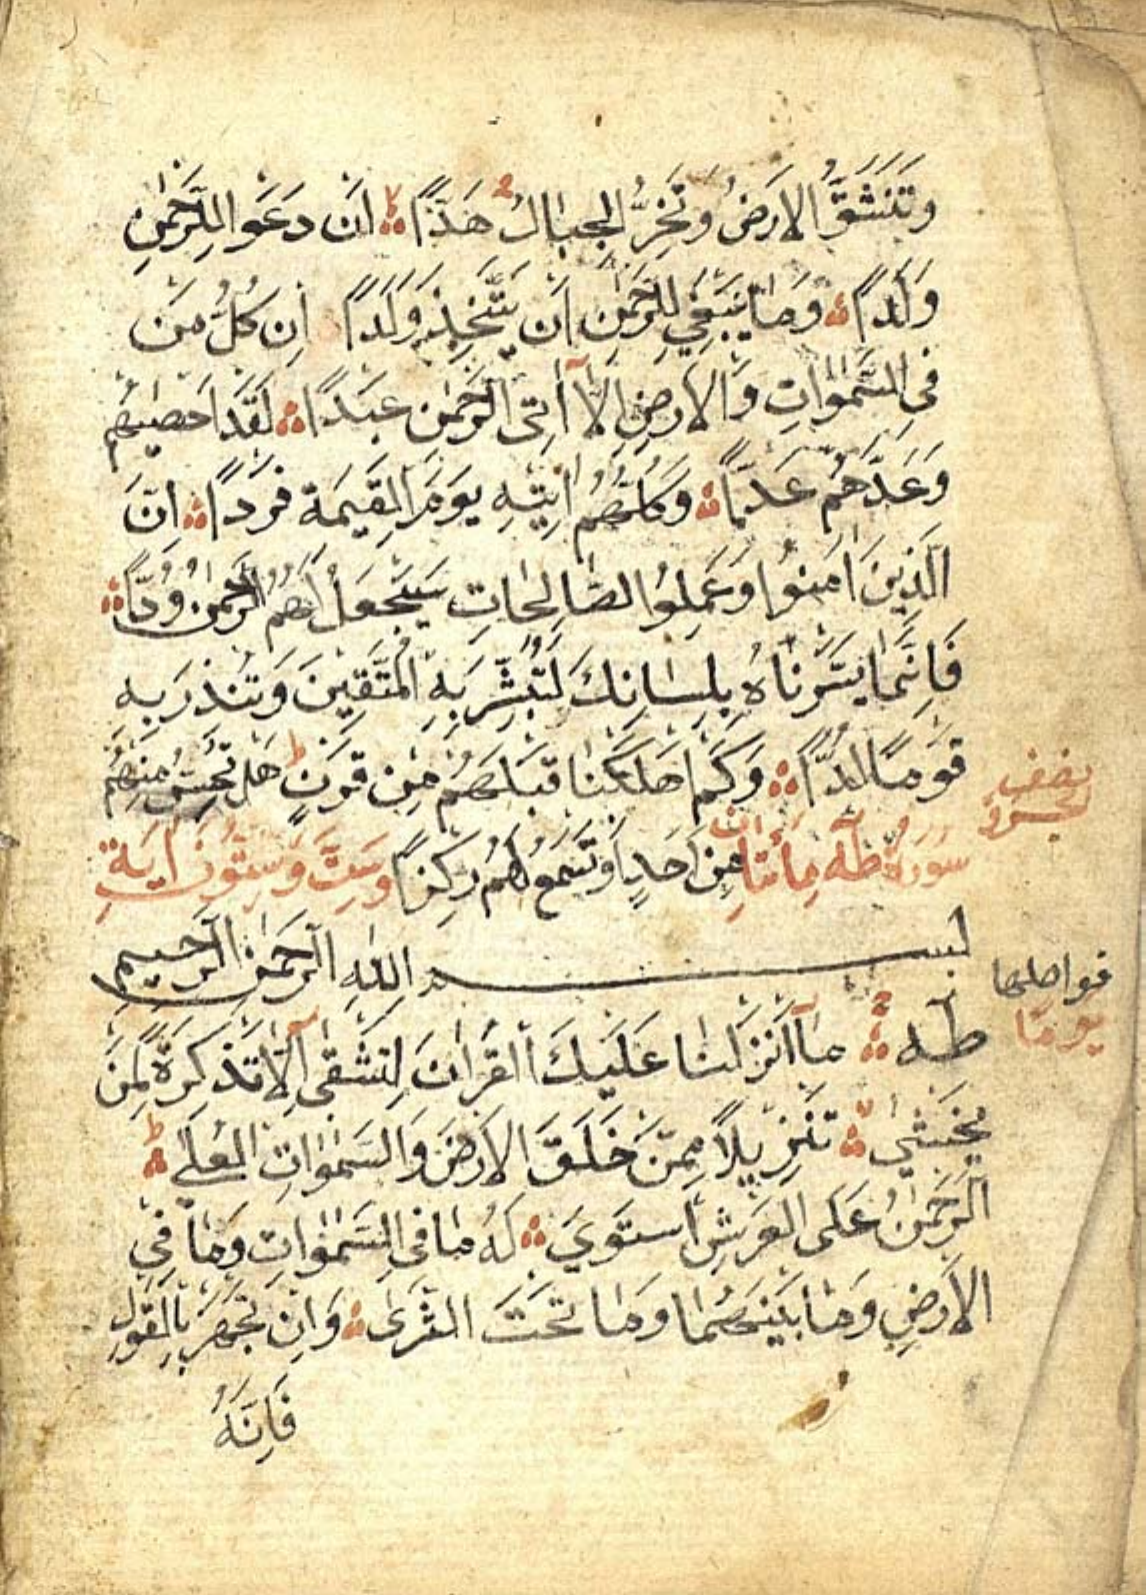 وَتَنْشَقُّ الْاَرْضُ وَتَخِرُّ الْجِبَالُ هَدًّا اَنْ دَعَوْا لِلرَّحْمٰنِ
وَلَدًا وَمَا يَنْبَغِي لِلرَّحْمٰنِ اَنْ يَتَّخِذَ وَلَدًا اِنْ كُلُّ مَنْ
فِي السَّمٰوَاتِ وَالْاَرْضِ اِلَّا اٰتِى الرَّحْمٰنِ عَبْدًا لَقَدْ اَحْصٰيهُمْ
وَعَدَّهُمْ عَدًّا وَكُلُّهُمْ اٰتِيْهِ يَوْمَ الْقِيٰمَةِ فَرْدًا اِنَّ
الَّذِينَ اٰمَنُوا وَعَمِلُوا الصَّالِحَاتِ سَيَجْعَلُ لَهُمُ الرَّحْمٰنُ وُدًّا
فَاِنَّمَا يَسَّرْنَاهُ بِلِسَانِكَ لِتُبَشِّرَ بِهِ الْمُتَّقِينَ وَتُنْذِرَ بِهِ
قَوْمًا لُدًّا وَكَمْ اَهْلَكْنَا قَبْلَهُمْ مِنْ قَرْنٍ هَلْ تُحِسُّ مِنْهُمْ
نصف
مِنْ اَحَدٍ اَوْ تَسْمَعُ لَهُمْ رِكْزًا
سُورَةُ طٰهٰ مِائَتَانِ وَسِتٌّ وَسِتُّونَ اٰيَةً
بسم اللهِ الرَّحْمٰنِ الرَّحِيمِ
فواصلها
يومًا
طٰهٰ مَا اَنْزَلْنَا عَلَيْكَ الْقُرْاٰنَ لِتَشْقٰى اِلَّا تَذْكِرَةً لِمَنْ
يَخْشٰى تَنْزِيلًا مِمَّنْ خَلَقَ الْاَرْضَ وَالسَّمٰوَاتِ الْعُلَى
الرَّحْمٰنُ عَلَى الْعَرْشِ اسْتَوَى لَهُ مَا فِي السَّمٰوَاتِ وَمَا فِي
الْاَرْضِ وَمَا بَيْنَهُمَا وَمَا تَحْتَ الثَّرٰى وَاِنْ تَجْهَرْ بِالْقَوْلِ
فَاِنَّهُ